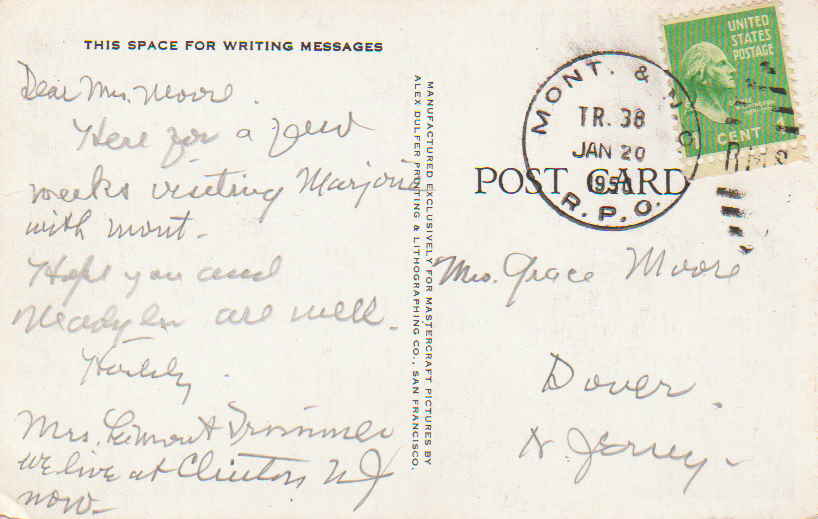 THIS SPACE FOR WRITING MESSAGES
Dear Mrs. Moore.
Here for a few
weeks visiting Marjorie
with Mont.
Hope you and
are well.
Mrs. Trimmer
we live at Clinton NJ
now-
MANUFACTURED EXCLUSIVELY FOR MASTERCRAFT PICTURES BY
ALEX DULFER PRINTING & LITHOGRAPHING CO., SAN FRANCISCO.
UNITED
STATES
POSTAGE
CENT
MONT. &
TR. 38
JAN 20
1950
R.P.O.
POST CARD
Mrs. Grace Moore
Dover.
N Jersey-